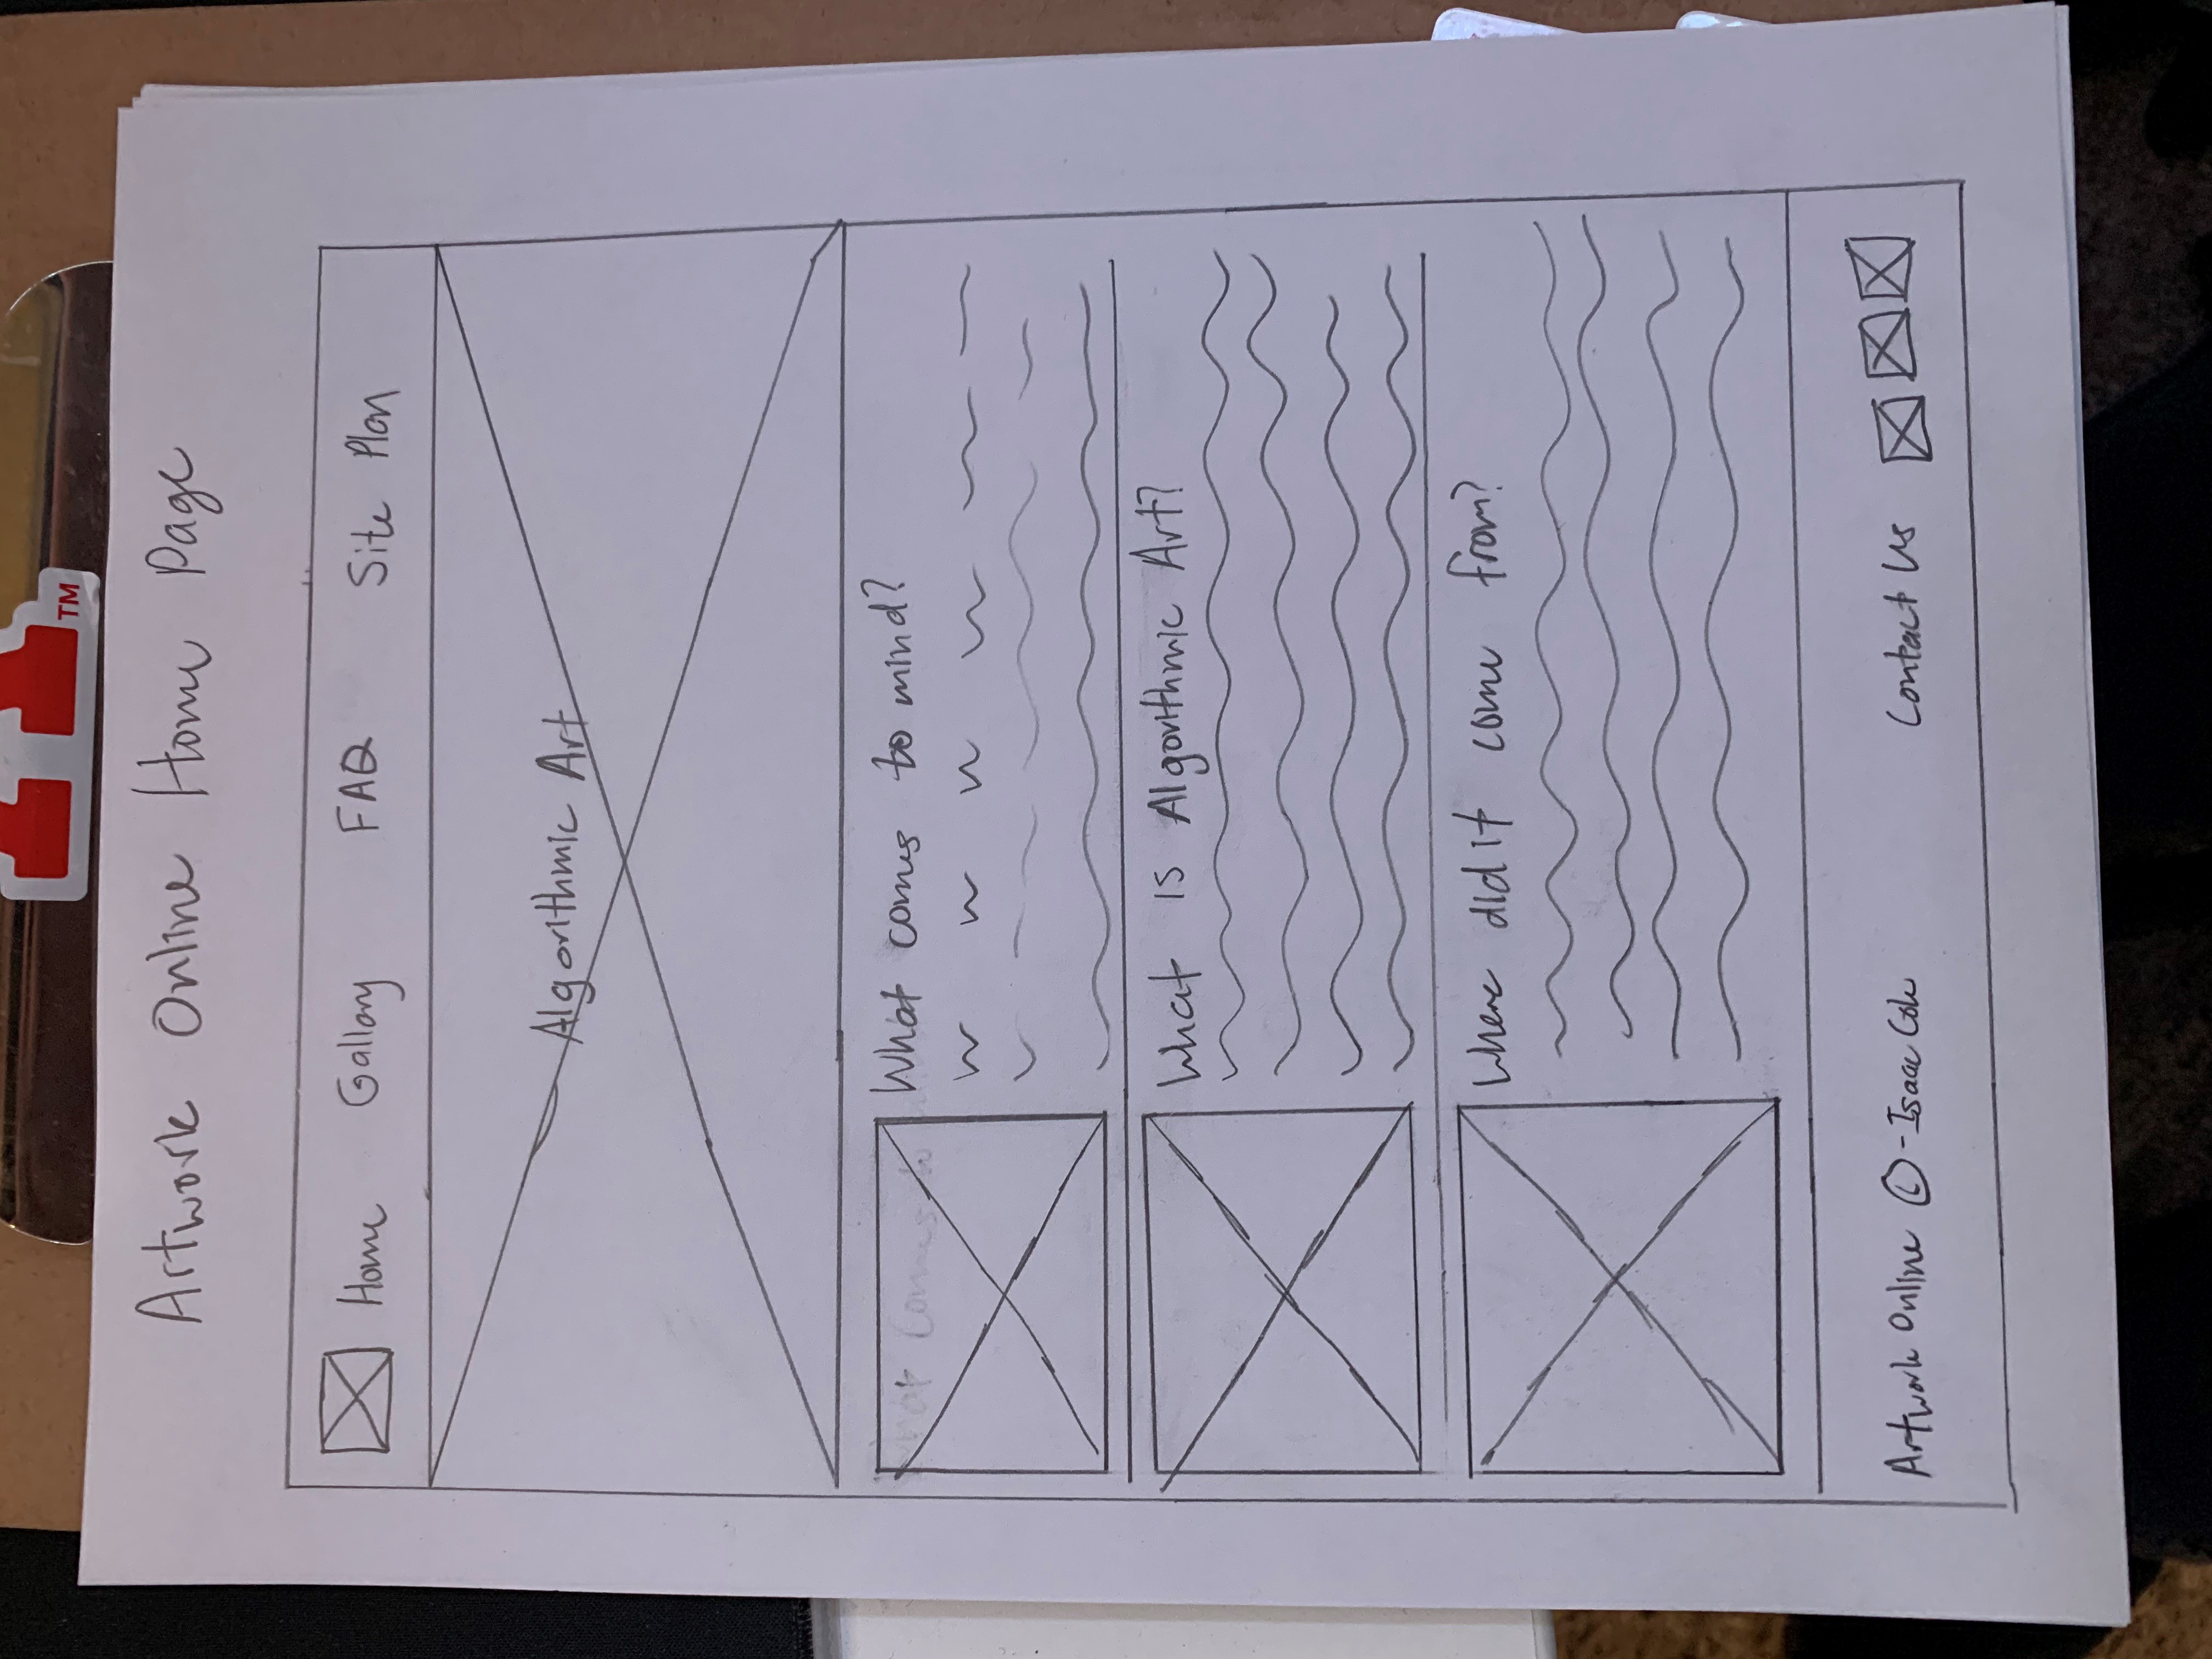 A TM
Artwork Online Home Page
Home Gallary FAQ Site Plan
Algorithmic Art
What comes to mind?
What comes to
What is Algorithmic Art?
Where did it come from?
Artwork Online © - Isaac Cole Contact Us